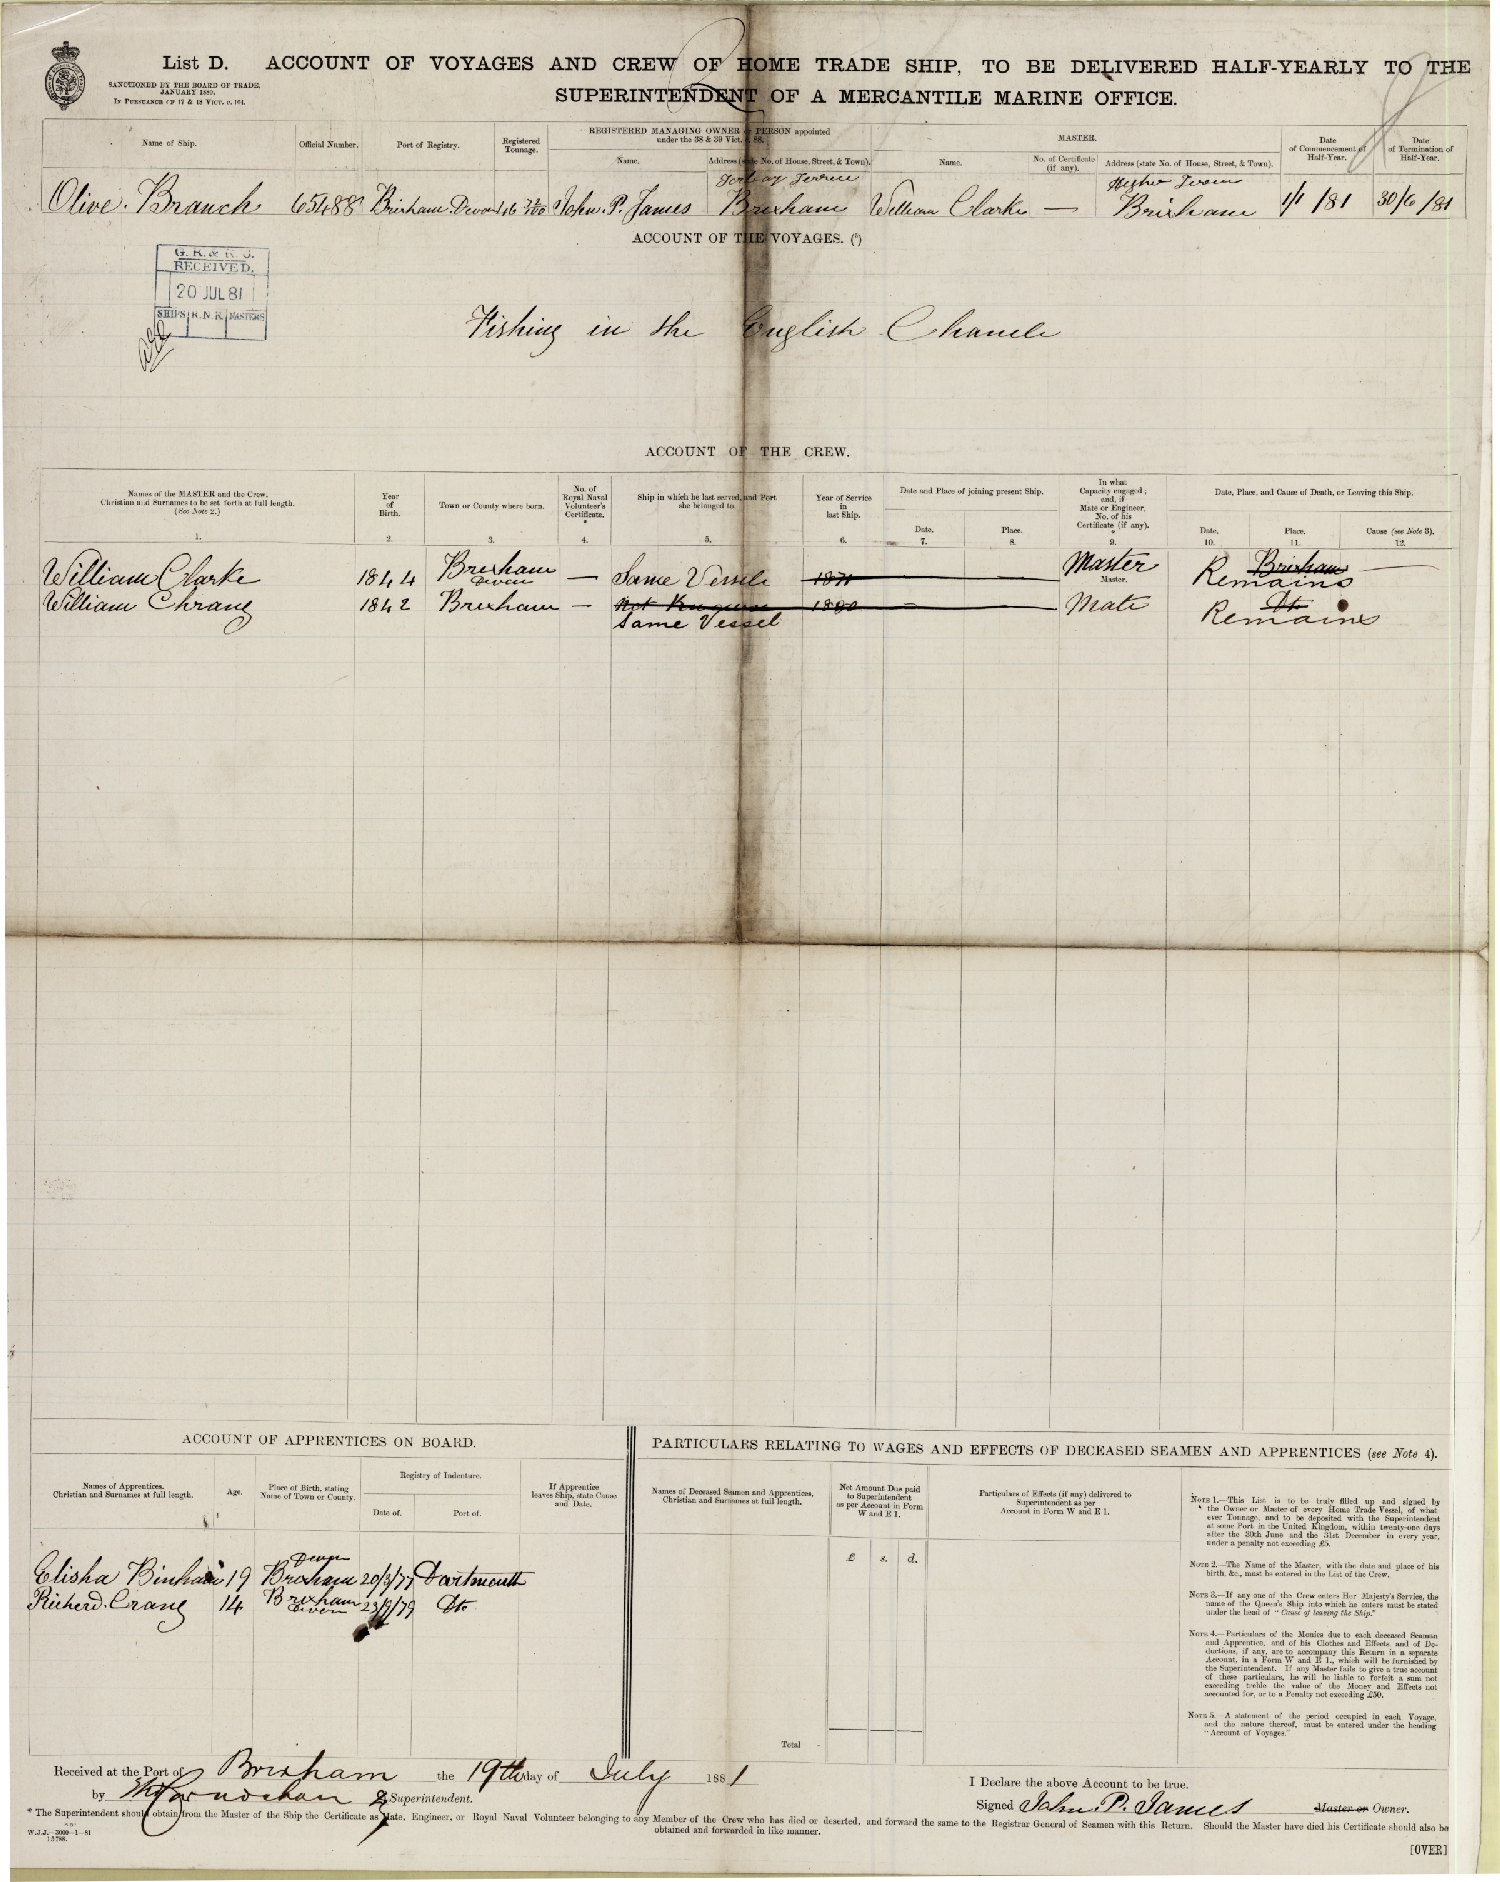 List D. ACCOUNT OF VOYAGES AND CREW OF HOME TRADE SHIP, TO BE DELIVERED HALF-YEARLY TO THE
SUPERINTENDENT OF A MERCANTILE MARINE OFFICE.
SANCTIONED BY THE BOARD OF TRADE,
JANUARY 1880.
IN PURSUANCE OF 17 & 18 VICT. c. 104.
Name of Ship. Official Number. Port of Registry. Registered Tonnage. REGISTERED MANAGING OWNER or PERSON appointed under the 38 & 39 Vict. c. 88. MASTER. Date of Commencement of Half-Year. Date of Termination of Half-Year.
Name. Address (state No. of House, Street, & Town). Name. No. of Certificate (if any). Address (state No. of House, Street, & Town).
Torbay Terrice Higher
Olive. Branch 65488 Brixham. Devon 16 John. P. James Brixham William Clarke — Brixham 1/1/81 30/6/81
ACCOUNT OF THE VOYAGES. (5)
RECEIVED.
20 JUL 81
SHIPS R.N.R. MASTERS
Fishing in the English Chanele
ACCOUNT OF THE CREW.
Names of the MASTER and the Crew. Christian and Surnames to be set forth at full length. (See Note 2.) Year of Birth. Town or County where born. No. of Royal Naval Volunteer's Certificate. * Ship in which he last served, and Port she belonged to. Year of Service in last Ship. Date and Place of joining present Ship. In what Capacity engaged; and, if Mate or Engineer, No. of his Certificate (if any). * Date, Place, and Cause of Death, or Leaving this Ship.
Date. Place. Date. Place. Cause (see Note 3).
1. 2. 3. 4. 5. 6. 7. 8. 9. 10. 11. 12.
William Clarke 1844 Brixham Devon — Same Vessele 1871 Master Master. Brixham Remains —
William Chrang 1842 Brixham — Not 1880 — Mate Do Remains
Same Vessel
ACCOUNT OF APPRENTICES ON BOARD.
Names of Apprentices. Christian and Surnames at full length. Age. Place of Birth, stating Name of Town or County. Registry of Indenture. If Apprentice leaves Ship, state Cause and Date.
Date of. Port of.
Devon
Elisha 19 Brixham 20/3/77 Dartmouth
Richerd. Crang 14 Brixham Devon 23/9/79 Do
PARTICULARS RELATING TO WAGES AND EFFECTS OF DECEASED SEAMEN AND APPRENTICES (see Note 4).
Names of Deceased Seamen and Apprentices, Christian and Surnames at full length. Net Amount Due paid to Superintendent as per Account in Form W and E 1. Particulars of Effects (if any) delivered to Superintendent as per Account in Form W and E 1.
£ s. d.
Total
NOTE 1.—This List is to be truly filled up and signed by
the Owner or Master of every Home Trade Vessel, of what
ever Tonnage, and to be deposited with the Superintendent
at some Port in the United Kingdom, within twenty-one days
after the 30th June and the 31st December in every year,
under a penalty not exceeding £5.
NOTE 2.—The Name of the Master, with the date and place of his
birth, &c., must be entered in the List of the Crew.
NOTE 3.—If any one of the Crew enters Her Majesty's Service, the
name of the Queen's Ship into which he enters must be stated
under the head of "Cause of leaving the Ship."
NOTE 4.—Particulars of the Monies due to each deceased Seaman
and Apprentice, and of his Clothes and Effects and of De-
ductions, if any, are to accompany this Return in a separate
Account, in a Form W and E 1., which will be furnished by
the Superintendent. If any Master fails to give a true account
of these particulars, he will be liable to forfeit a sum not
exceeding treble the value of the Money and Effects not
accounted for, or to a Penalty not exceeding £50.
NOTE 5.—A statement of the period occupied in each Voyage,
and the nature thereof, must be entered under the heading
"Account of Voyages."
Received at the Port of Brixham the 19th day of July 1881
by Superintendent.
I Declare the above Account to be true.
Signed John. P. James Master or Owner.
* The Superintendent should obtain from the Master of the Ship the Certificate as Mate, Engineer, or Royal Naval Volunteer belonging to any Member of the Crew who has died or deserted, and forward the same to the Registrar General of Seamen with this Return. Should the Master have died his Certificate should also be
obtained and forwarded in like manner.
W.J.J.—3000—1—81
15788.
[OVER]